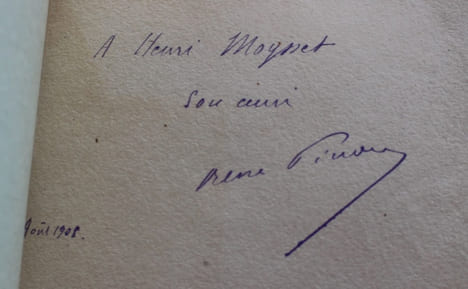 A Henri Moysset
Son ami
René Pinon
Août 1908.